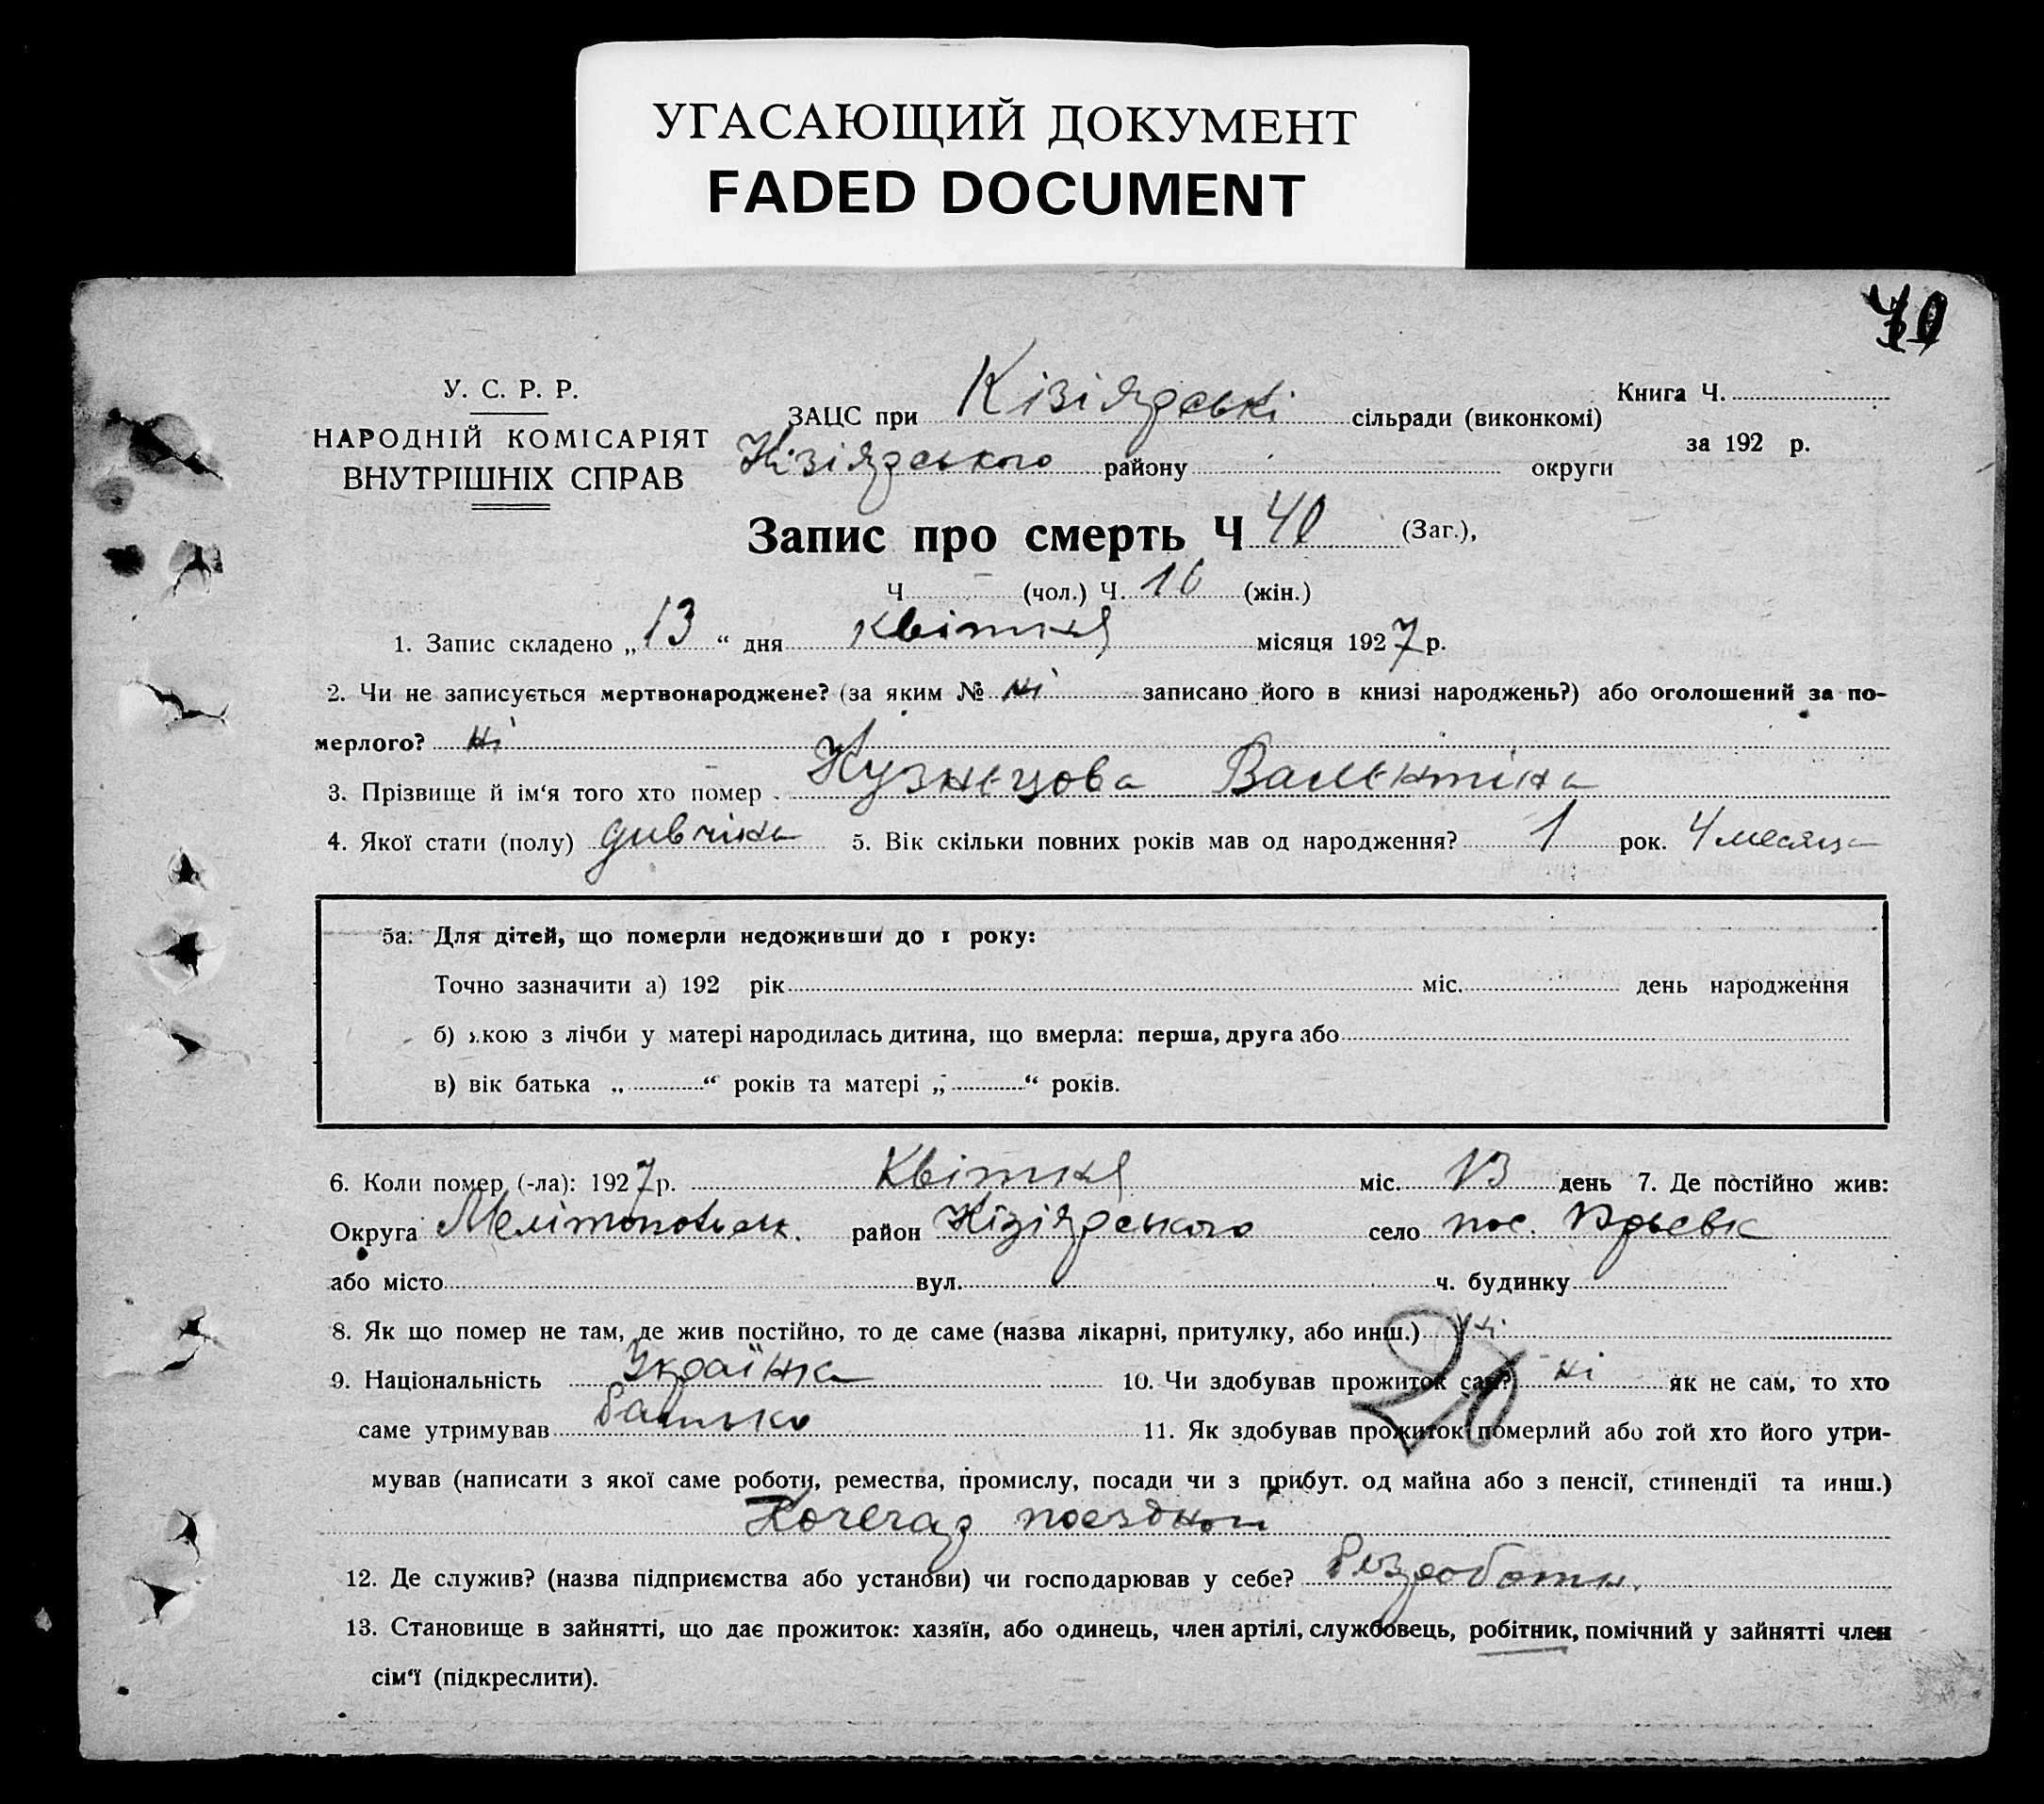 УГАСАЮЩИЙ ДОКУМЕНТ
FADED DOCUMENT
У. С. Р. Р.
НАРОДНІЙ КОМІСАРІЯТ
ВНУТРІШНІХ СПРАВ
ЗАЦС при Кізіярські сільради (виконкомі)
Кізіярського району округи
Книга Ч.
за 192 р.
Запис про смерть Ч 40 (Заг.),
Ч — (чол.) Ч. 16 (жін.)
1. Запис складено „ 13 “ дня квітня місяця 1927 р.
2. Чи не записується мертвонароджене? (за яким № ні записано його в книзі народжень?) або оголошений за по-
мерлого? ні
3. Прізвище й ім‘я того хто помер Кузнецова Валентіна
4. Якої стати (полу) дивчина 5. Вік скільки повних років мав од народження? 1 рок. 4 месяца
5а: Для дітей, що померли недоживши до 1 року:
Точно зазначити а) 192 рік міс. день народження
б) якою з лічби у матері народилась дитина, що вмерла: перша, друга або
в) вік батька „ “ років та матері „ “ років.
6. Коли помер (-ла): 1927 р. Квітня міс. 13 день 7. Де постійно жив:
Округа Мелітопольск. район Кізіярського село пос.
або місто вул. ч. будинку
8. Як що помер не там, де жив постійно, то де саме (назва лікарні, притулку, або инш.) ні
20
9. Національність Українка 10. Чи здобував прожиток сам? ні як не сам, то хто
саме утримував батько 11. Як здобував прожиток померлий або той хто його утри-
мував (написати з якої саме роботи, ремества, промислу, посади чи з прибут. од майна або з пенсії, стипендії та инш.)
Кочегар поездной
12. Де служив? (назва підприємства або установи) чи господарював у себе? безработн.
13. Становище в зайнятті, що дає прожиток: хазяїн, або одинець, член артілі, службовець, робітник, помічний у зайнятті член
сім‘ї (підкреслити).